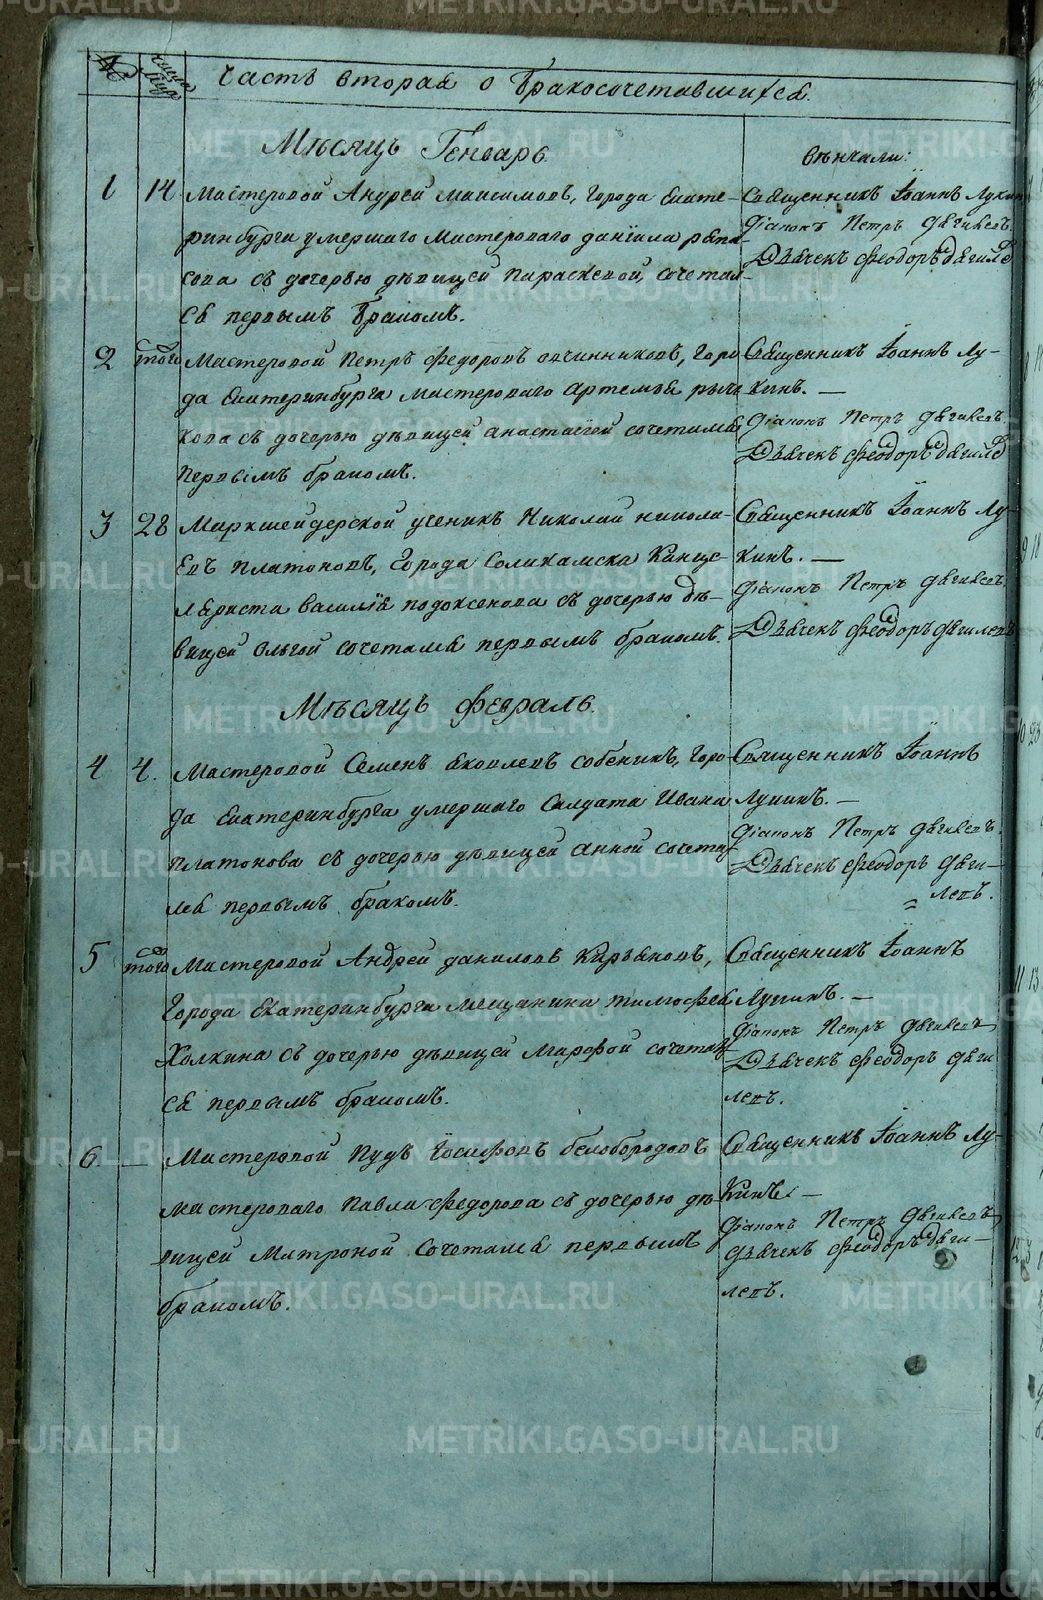 № Числа
Часть вторая о Бракосочетавшихся.
Мѣсяцъ Генварь
вѣнчали:
1 14 Мастеровой Андрей Максимовъ, Города Екате-
ринбурга умершаго Мастероваго Данїила
сова съ дочерью дѣвицей Параскевой, сочетал-
ся первымъ бракомъ.
Священникъ Іоаннъ Лукин
Діаконъ Петръ
Дьячекъ Феодоръ
2 того Мастеровой Петръ Федоровъ Овчинниковъ, Горо
да Екатеринбурга Мастероваго Артемья рыч
кова съ дочерью дѣвицей Анастасїей сочетался
первымъ бракомъ.
Священникъ Іоаннъ Лу-
кинъ. —
Діаконъ Петръ
Дьячекъ Феодоръ
3 28 Маркшейдерской ученикъ Николай никола-
евъ Платоновъ, Города Соликамска Канце-
ляриста Василїя подоксенова съ дочерью дѣ-
вицей Ольгой сочетался первымъ бракомъ.
Священникъ Іоаннъ Лу-
кинъ. —
Діаконъ Петръ
Дьячекъ Феодоръ
Мѣсяцъ Февраль
4 4. Мастеровой Семенъ Яковлевъ Собенинъ, Горо-
да Екатеринбурга умершаго Солдата Ивана
Платонова съ дочерью дѣвицей Анной сочетал
ся первымъ бракомъ.
Священникъ Іоаннъ
Лукинъ. —
Діаконъ Петръ
Дьячекъ Феодоръ Дяги-
левъ.
5 того Мастеровой Андрей Даниловъ Кирьяковъ,
Города Екатеринбурга Мещанина Тимофея
Холкина съ дочерью дѣвицей Марфой сочетал
ся первымъ бракомъ.
Священникъ Іоаннъ
Лукинъ. —
Діаконъ Петръ
Дьячекъ Феодоръ Дяги
левъ.
6 — Мастеровой Пудъ Їосифовъ Белобородовъ
Мастероваго Павла Федорова съ дочерью дѣ
вицей Матроной сочетался первымъ
бракомъ.
Священникъ Іоаннъ Лу-
кинъ. —
Діаконъ Петръ
Дьячекъ Феодоръ Дяги-
левъ.
METRIKI.GASO-URAL.RU